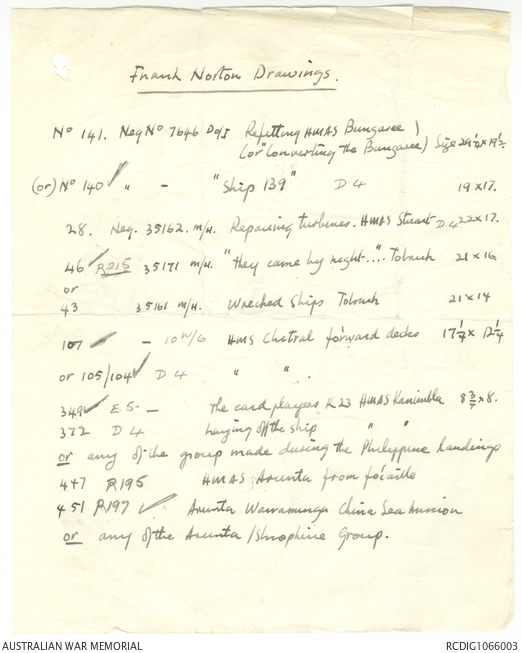 Frank Norton Drawings.
No 141. Neg No 7646 D of I Refitting HMAS Bungaree )
(or "Converting the Bungaree) Size 29 1/4 x 19 1/2
(or) No 140 " - "Ship 139" D4 19 x 17.
28. Neg. 35162. m/n. Repairing turbines. HMAS Stuart D4 22 x 17.
46 R215 35171 m/n. "they came by night...." Tobruk 21 x 16
or
43 35161 m/n. Wrecked Ships Tobruk 21 x 14
107 - 10 W/G HMS Chitral forward decks 17 1/4 x 12 1/4
or 105/104 D4 " " .
349 E.S- - The card players K23 HMAS Kanimbla 8 3/4 x 8.
372 D4 Laying off the ship " "
or any of the group made during the Philippine landings
447 R195 HMAS Arunta from fo'c'stle
451 R197 Arunta Warramunga China Sea mission
or any of the Arunta /Shropshire Group.
AUSTRALIAN WAR MEMORIAL
RCDIG1066003